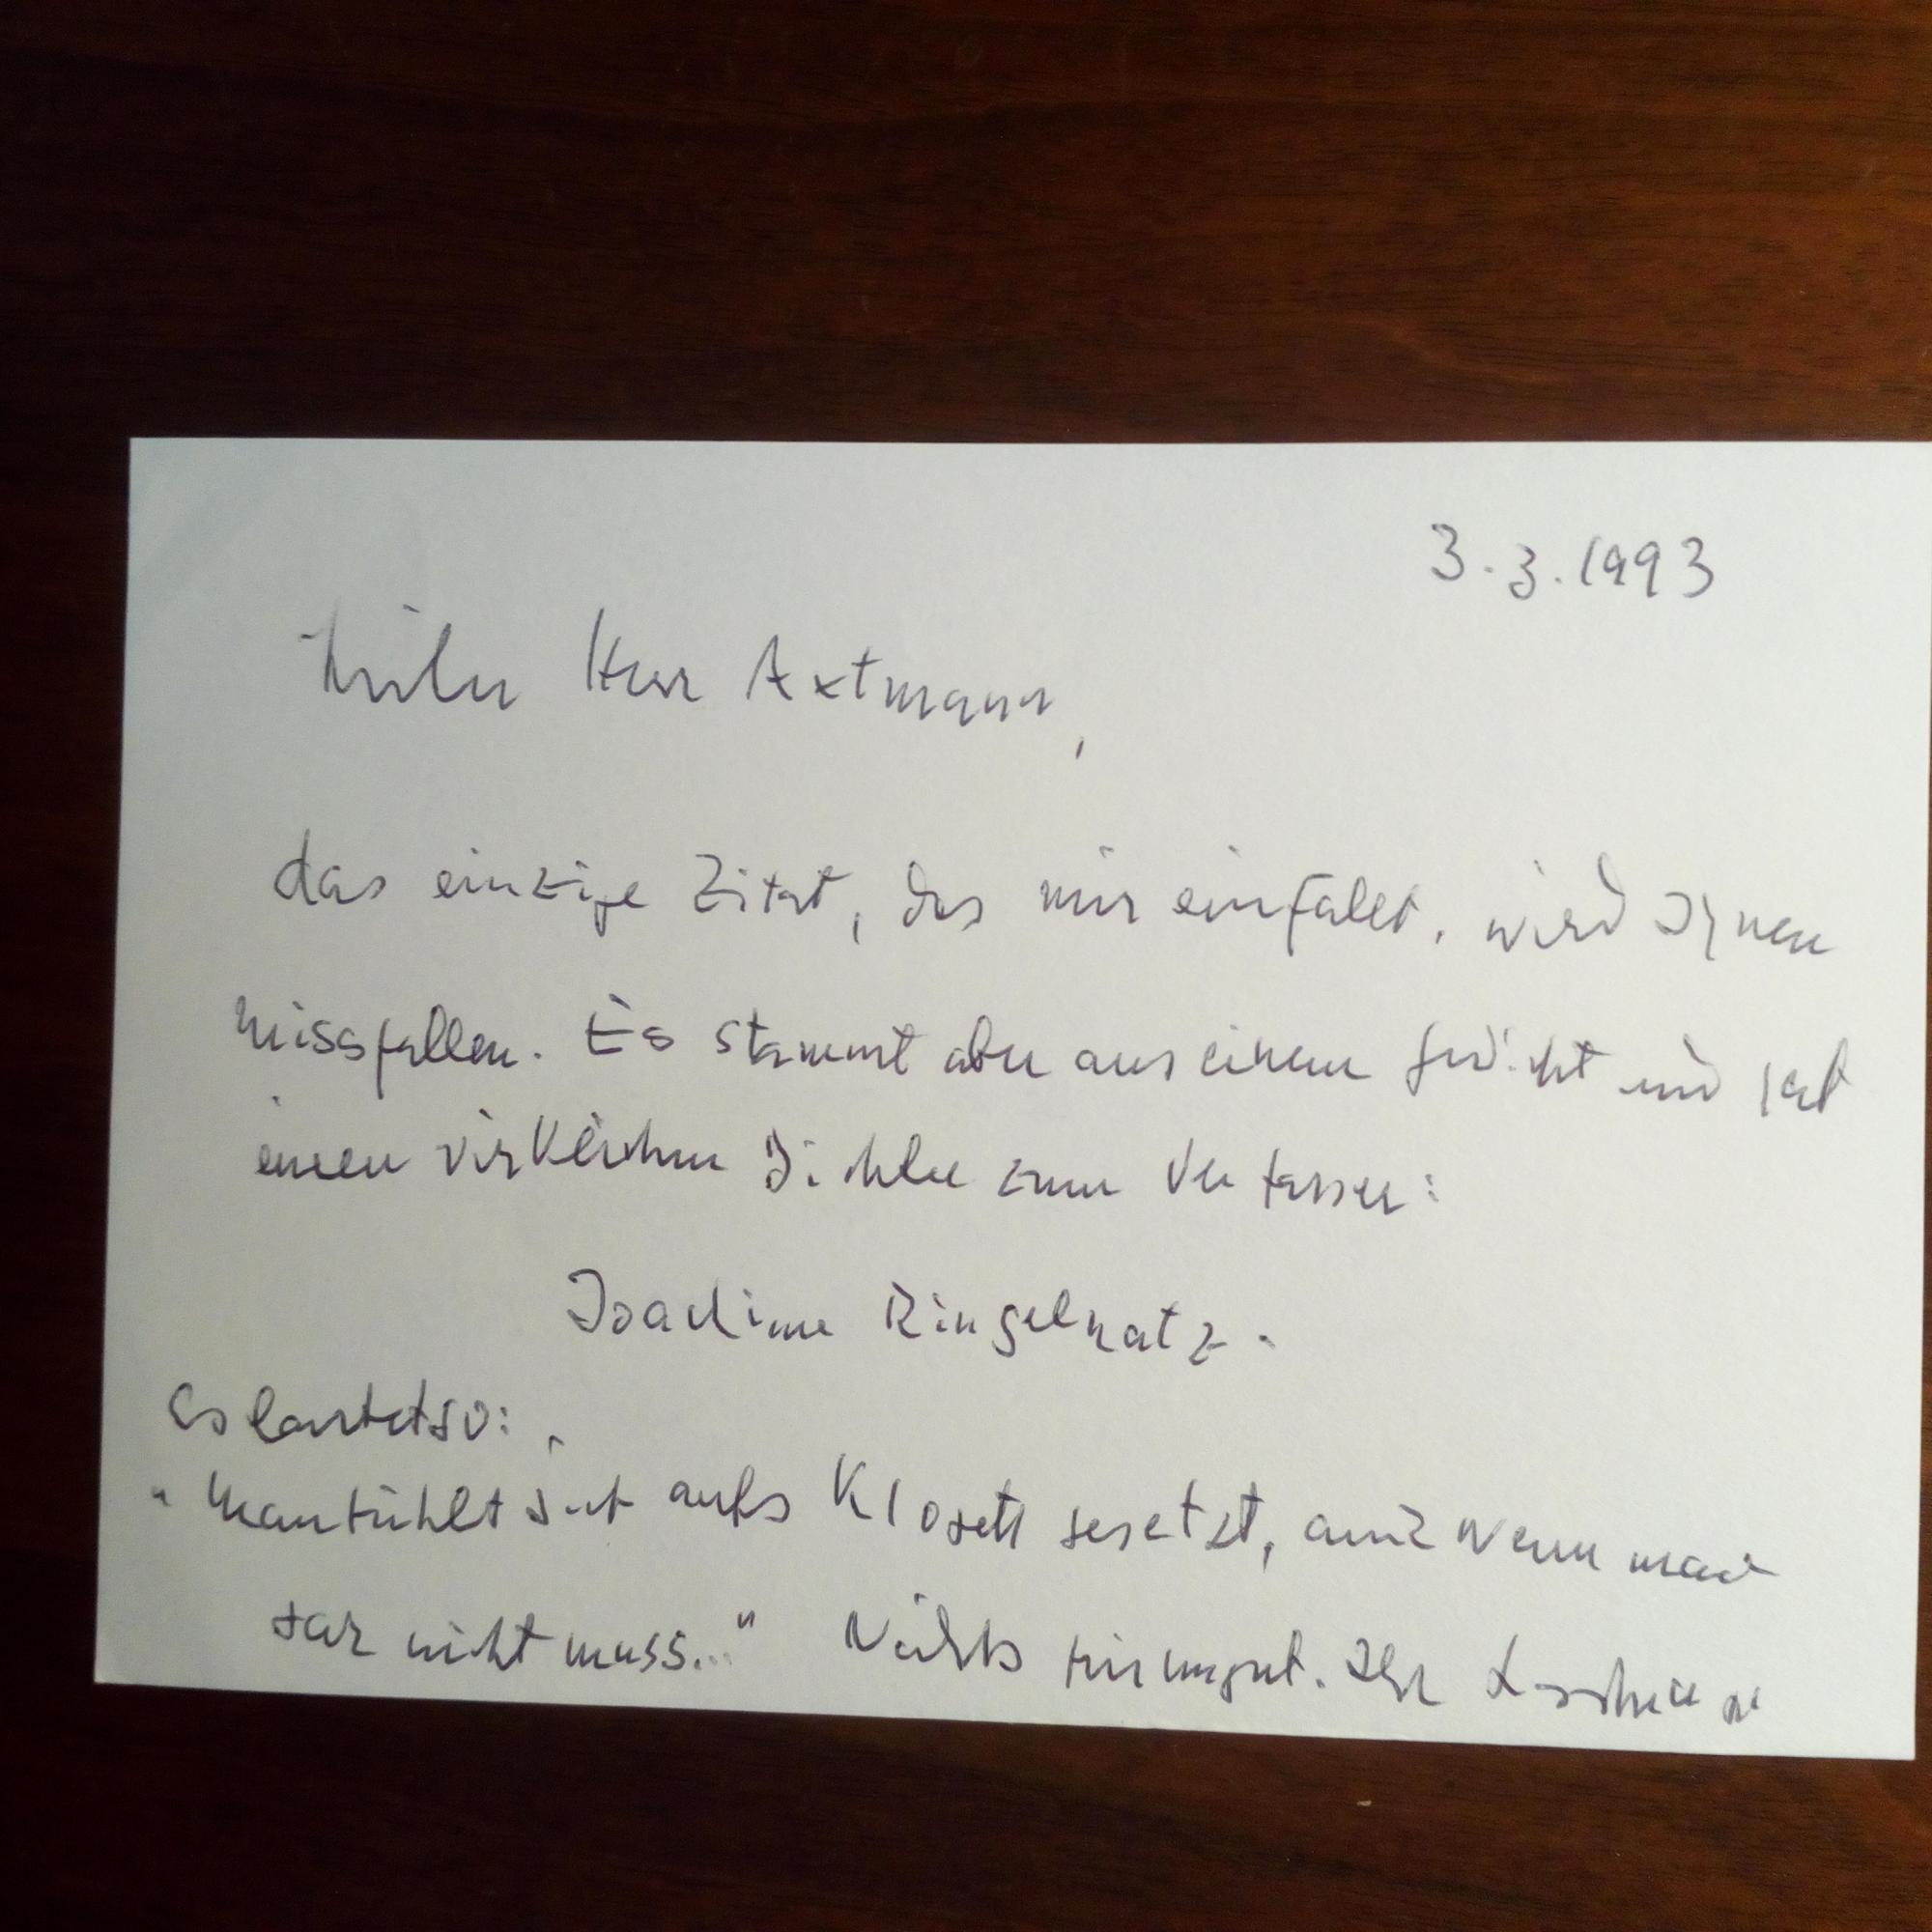 3.3.1993
Lieber Herr Axtmann,
das einzige Zitat, das mir einfällt, wird Ihnen
missfallen. Es stammt aber aus einem Gedicht und hat
einen wirklichen Dichter zum Verfasser:
Joachim Ringelnatz.
Es lautet so:
"Man fühlt sich aufs Klosett gesetzt, auch wenn man
gar nicht muss..." Nichts für ungut. Ihr